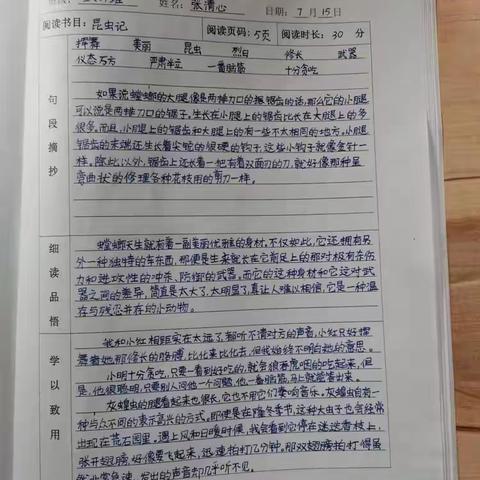 姓名: 张清心
日期: 7月15日
阅读书目: 昆虫记 阅读页码: 5页 阅读时长: 30 分
挥舞 美丽 昆虫 烈日 修长 武器
仪态万方 严肃半立 一番脑筋 十分贪吃
句段摘抄
如果说螳螂的大腿像是两排刀口的锯齿的话,那么它的小腿
可以说是两排刀口的锯子,生长在小腿上的锯齿比长在大腿上的多
很多。而且,小腿上的锯齿和大腿上的有一些不太相同的地方。小腿
锯齿的末端还生长着尖锐的很硬的钩子,这些小钩子就像金针一
样。除此以外,锯齿上还长着一把有着双面刃的刀,就好像那种呈
弯曲状的修理各种花枝用的剪刀一样。
细读品悟
螳螂天生就有着一副美丽优雅的身材。不仅如此,它还拥有另
外一种独特的车东西,那便是生来就长在它前足上的那对极有杀伤
力和进攻性的冲杀、防御的武器。而它的这种身材和它这对武
器之间的差异,简直是太大了,太明显了,真让人难以相信,它是一种温
存与残忍并存的小动物。
学以致用
我和小红相距实在太远了,都听不清对方的声音,小红只好挥
舞着她那修长的胳膊,比化来比化去,但我始终不明白她的意思。
小明十分贪吃,只要一看到好吃的,就会狼吞虎咽的吃起来,但
是,他很聪明,只要别人问他一个问题,他一番脑筋,马上就能答出来。
灰蝗虫的腿看起来也很长,它也不用它们奏响音乐。灰蝗虫自有一
种与众不同的表示高兴的方式。即使是在隆冬季节,这种大虫子也会经常
出现在荒石园里。遇上风和日暖时候,我会看到它停在迷迭香枝上,
张开翅膀,好像要飞起来,迅速拍打几分钟。那双翅膀拍打得虽
然非常急速,发出的声音却几乎听不见。